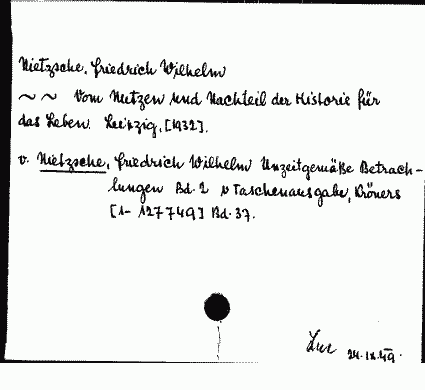 Nietzsche, Friedrich Wilhelm
~ ~ Vom Nutzen und Nachteil der Historie für
das Leben. Leipzig, [1932].
v. Nietzsche, Friedrich Wilhelm Unzeitgemäße Betrach-
tungen Bd. 2 v Taschenausgabe, Kröners
[1- 127749] Bd. 37.
24.IX.49.